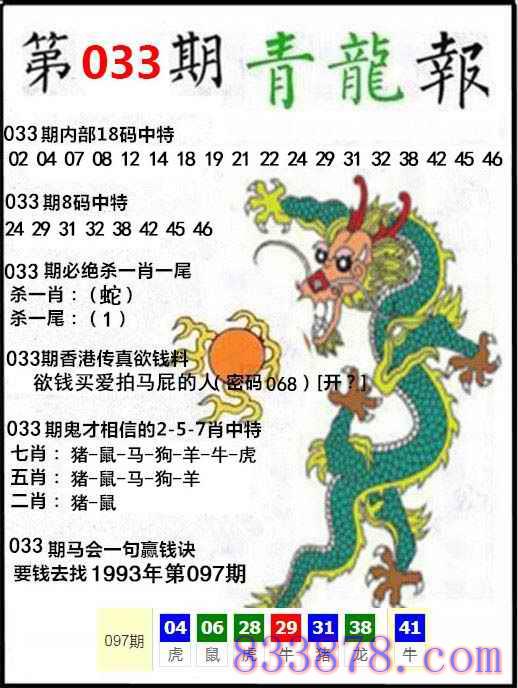 第033期青龍報
033期内部18码中特
02 04 07 08 12 14 18 19 21 22 24 29 31 32 38 42 45 46
033期8码中特
24 29 31 32 38 42 45 46
033 期必绝杀一肖一尾
杀一肖：（蛇）
杀一尾：（1）
033期香港传真欲钱料
欲钱买爱拍马屁的人(密码068）[开？]
033期鬼才相信的2-5-7肖中特
七肖：猪-鼠-马-狗-羊-牛-虎
五肖：猪-鼠-马-狗-羊
二肖：猪-鼠
033 期马会一句赢钱诀
要钱去找1993年第097期
097期 04 06 28 29 31 38 41
虎 鼠 虎 牛 猪 龙 牛
833878.com